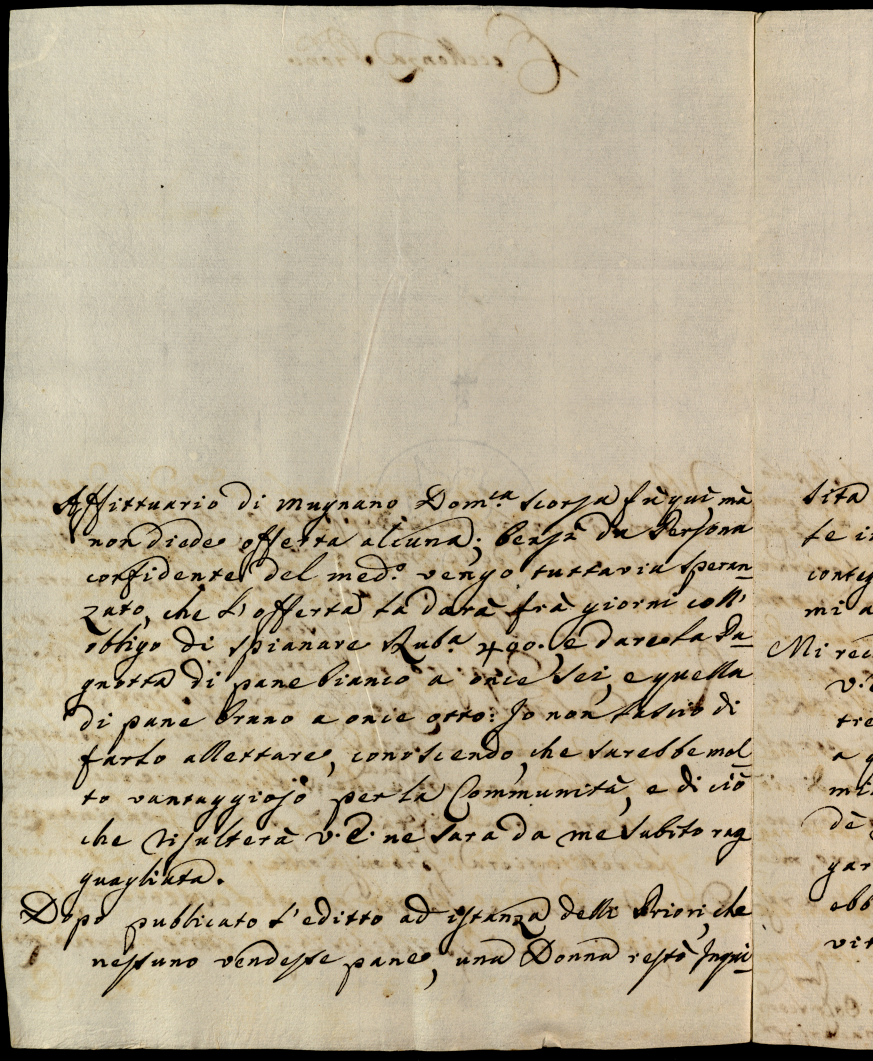 Affittuario di Mugnano Dom.ca scorsa fù qui, mà
non diede offerta alcuna; bensì da Persona
confidente del med.o vengo tuttavia speran-
zato, che l'offerta la darà frà giorni coll'
obbligo di spianare Rub.a 400. e dare la Pa-
gnotta di pane bianco a oncie sei, e quella
di pane bruno a oncie otto: Io non lascio di
farlo allettare, conoscendo, che sarebbe mol-
to vantaggioso per la Communità, e di ciò
che risulterà V. E. ne sarà da me subito rag
guagliata.
Dopo pubblicato l'editto ad istanza delli Priori, che
nessuno vendesse pane, una Donna restò Inqui-
sita
te i
conteg
mi a
Mi rec
V. E
tre
a q
mi
dè
gar
ebb
vit